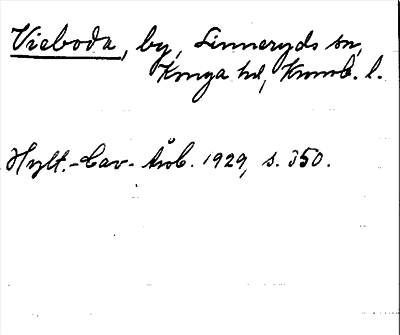 Vieboda, by, Linneryds sn,
Konga hd, Kronob. l.
Hylt.-Cav. årsb. 1929, s. 350.